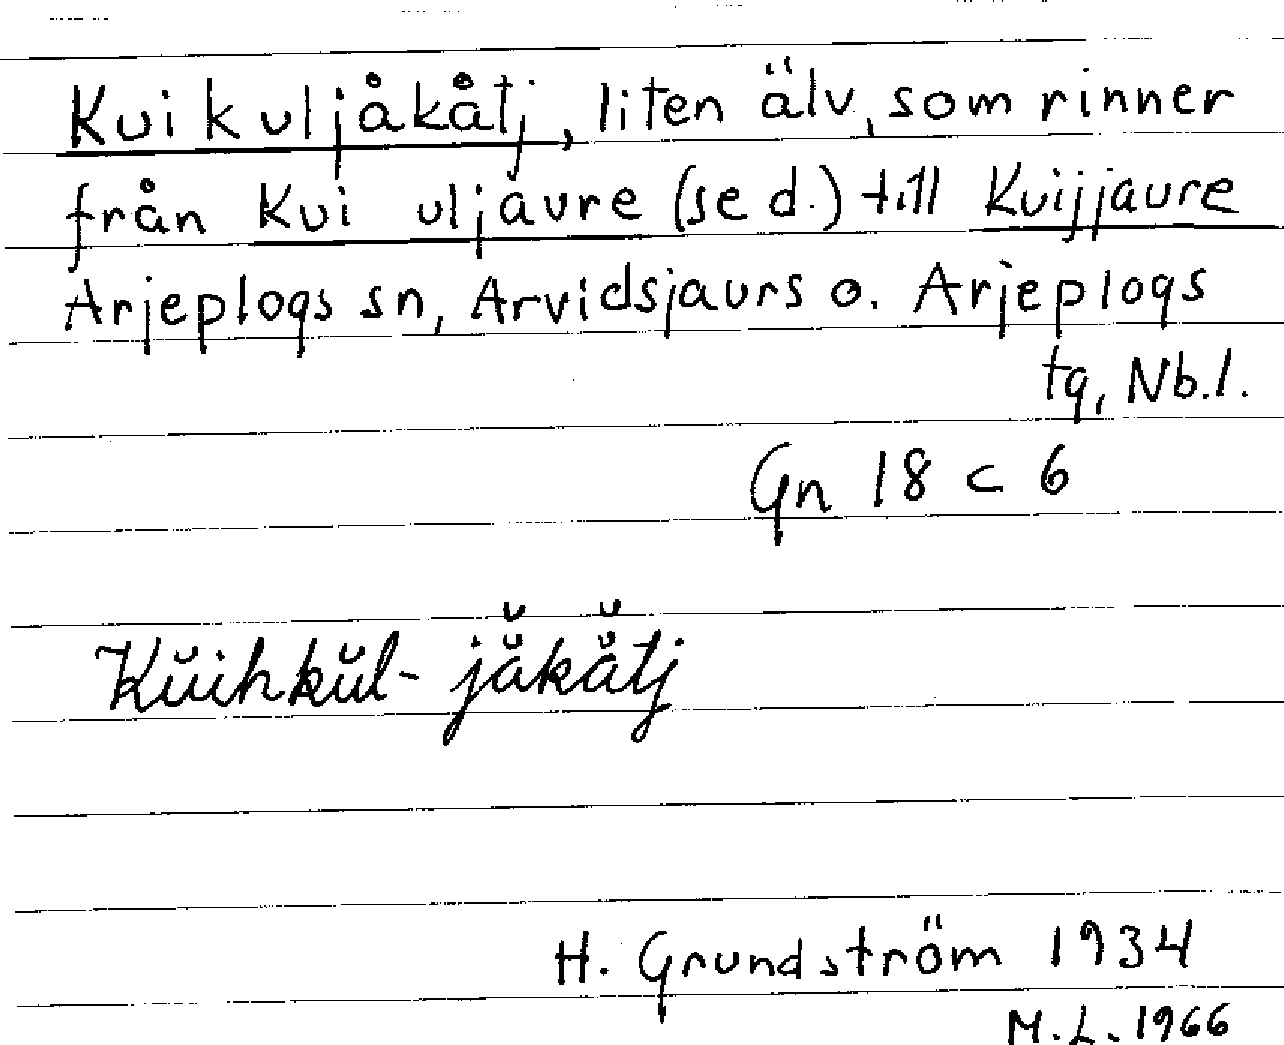 Kuikuljåkåtj, liten älv, som rinner
från Kui uljaure (se d.) till Kuijjaure
Arjeplogs sn, Arvidsjaurs o. Arjeplogs
tg, Nb.l.
Gn 18 c 6
Kŭihkŭl-jå̆kå̆tj
H. Grundström 1934
M.L. 1966